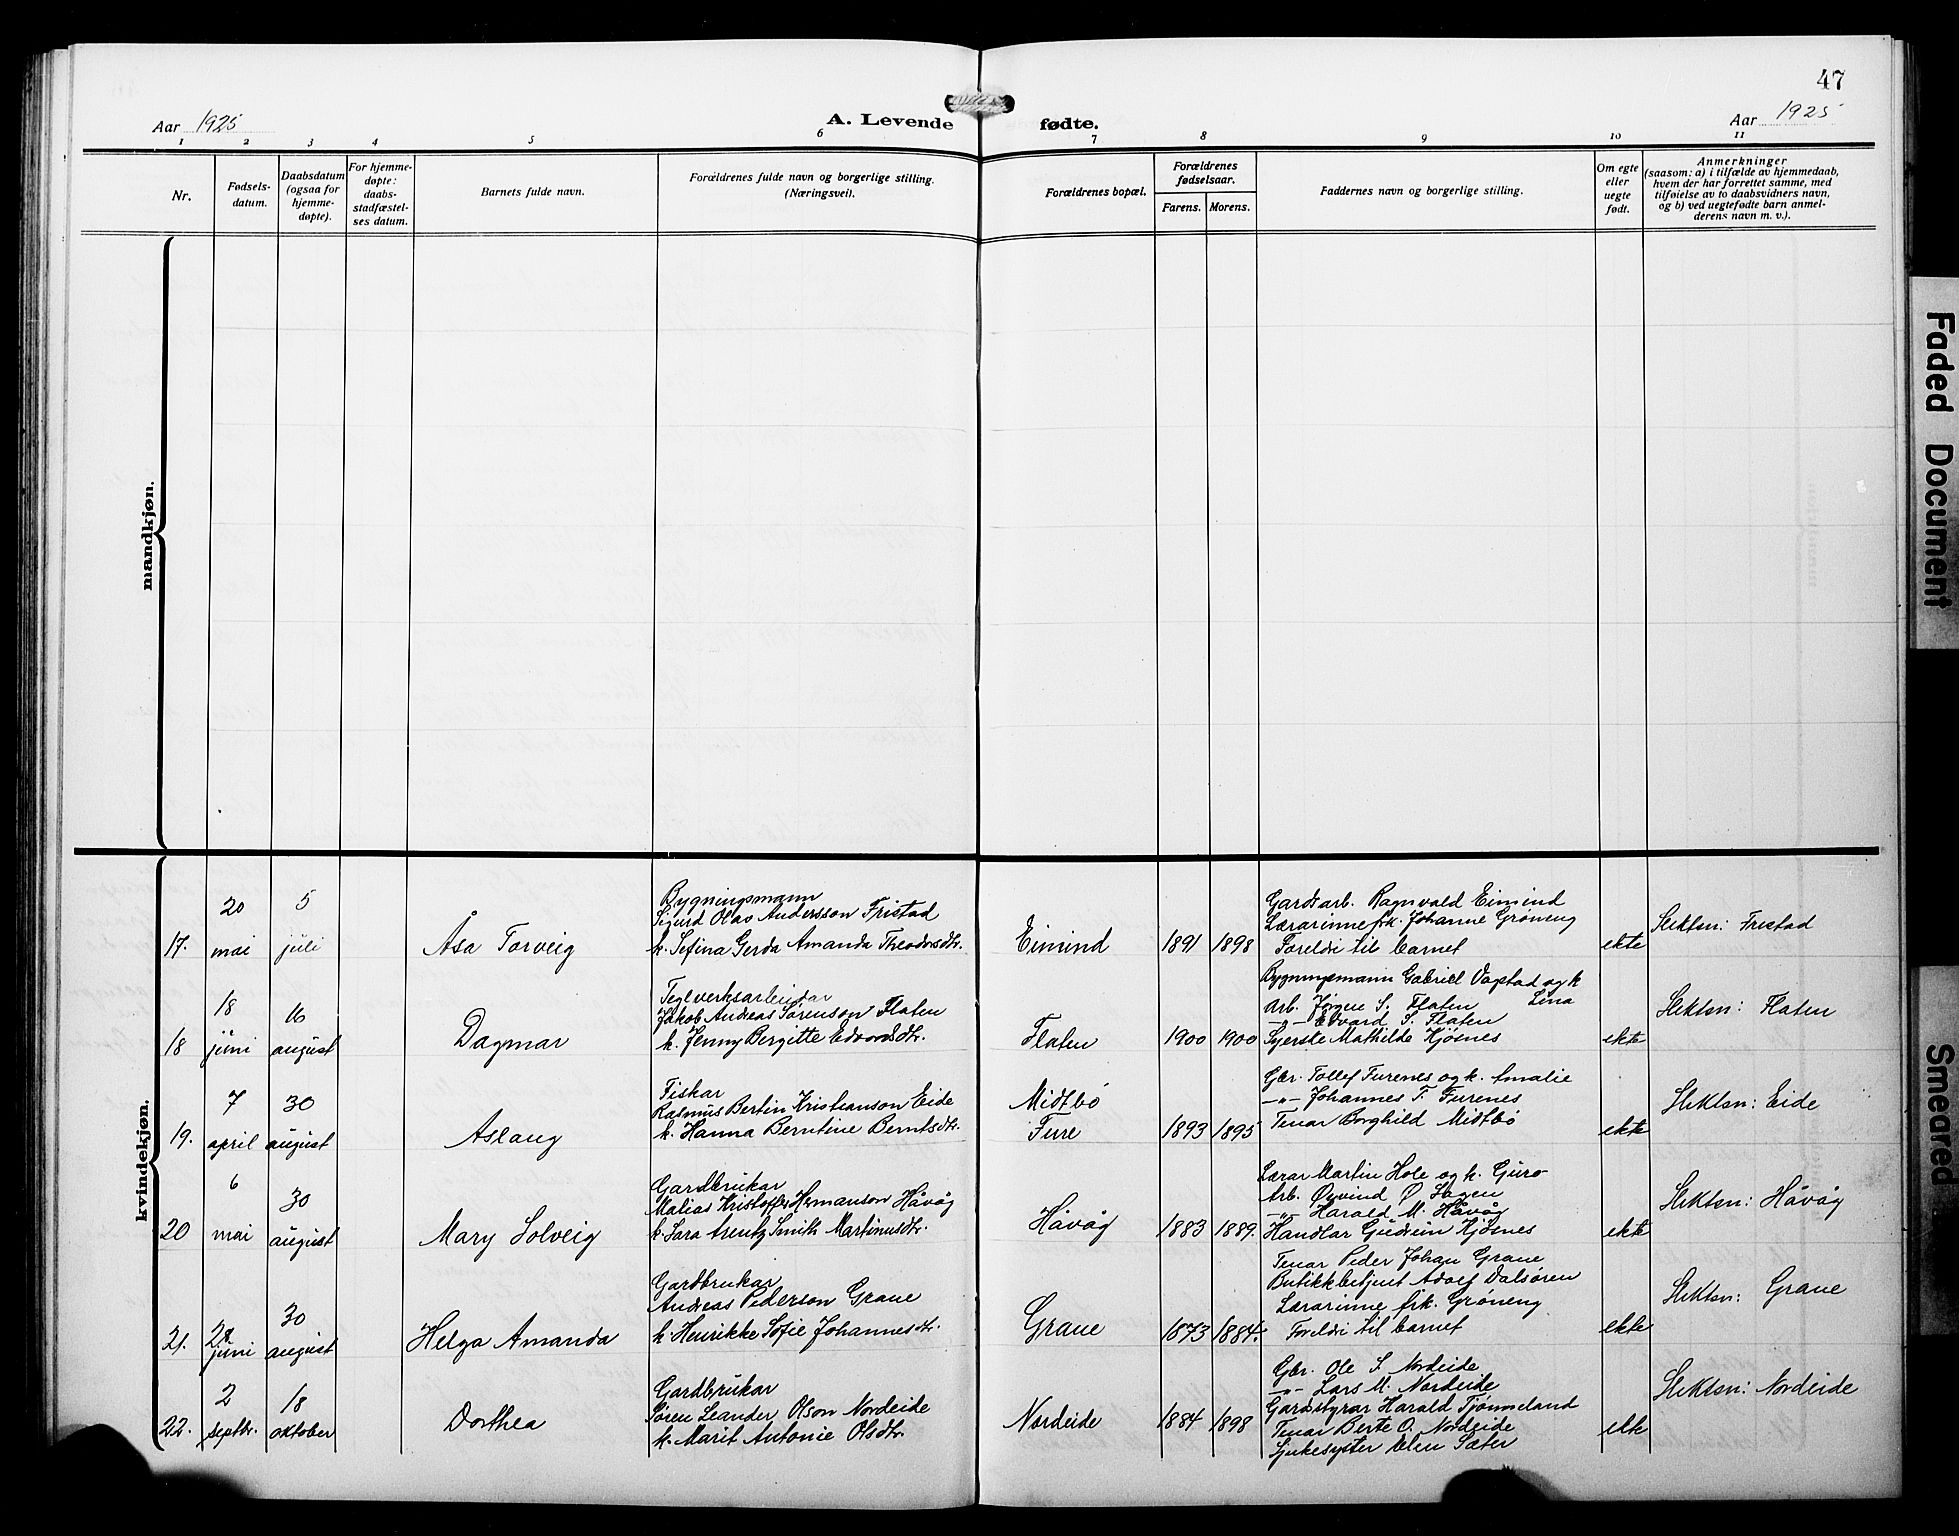 47
Aar 1925
A. Levende fødte.
Aar 1925
1 2 3 4 5 6 7 8 9 10 11
Nr.
Fødsels-
datum.
Daabsdatum
(ogsaa for
hjemme-
døpte).
For hjemme-
døpte:
daabs-
stadfæstel-
ses datum.
Barnets fulde navn.
Forældrenes fulde navn og borgerlige stilling.
(Næringsvei).
Forældrenes bopæl.
Forældrenes
fødselsaar.
Farens. Morens.
Faddernes navn og borgerlige stilling.
Om egte
eller
uegte
født.
Anmerkninger
(saasom: a) i tilfælde av hjemmedaab,
hvem der har forrettet samme, med
tilføielse av to daabsvidners navn,
og b) ved uegtefødte barn anmel-
derens navn m. v.).
mandkjøn.
kvindekjøn.
17.
20
mai
5
juli
Åsa Torveig
Bygningsmann
Sigurd Olav Andersson Fristad
k. Sefina Gerda Amanda Theodorsdtr.
Eimind
1891 1898
Gardsarb. Ragnvald Eimind
Lærarinne frk. Johanne Grøneng
Foreldri til barnet
ekte
Slektsn: Fristad
18
18
juni
16
august
Dagmar
Teglverksarbeidar
Jakob Andreas Sørenson Flaten
k. Jenny Bergitte Edvardsdtr.
Flaten
1900 1900
Bygningsmann Gabriel Vagstad og k
Lina
Arb. Jørgen S. Flaten
-"- Edvard S. Flaten
Syerske Mathilde Kjøsnes
ekte
Slektsn: Flaten
19.
7
april
30
august
Aslaug
Fiskar
Rasmus Bertin Kristianson Eide
k. Hanna Berntine Berntsdtr.
Midtbø
Fure
1893 1895
Gbr. Tollef Furenes og k. Amalie
-"- Johannes T. Furenes
Tenar Borghild Midtbø
ekte
Slektsn: Eide
20
6
mai
30
august
Mary Solveig
Gardbrukar
Malias Kristoffer Hermanson Håvåg
k. Sara Arentz Smith Martinusdtr.
Håvåg
1883 1889.
Lærar Martin Hole og k. Guro
Arb. Øyvind Ø
-"- Harald M. Håvåg
Handlar Gudrun Kjøsnes
ekte
Slektsn: Håvåg
21.
juni
30
august
Helga Amanda
Gardbrukar
Andreas Pederson Grane
k. Henrikke Sofie Johannesdtr.
Grane
1873 1884.
Tenar Peder Johan Grane
Butikkbetjent Adolf Dalsøren
Lærarinne frk. Grøneng
Foreldri til barnet
ekte
Slektsn: Grane
22.
2
septbr.
18
oktober
Dorthea
Gardbrukar
Søren Leander Olson Nordeide
k. Marit Antonie Olsdtr.
Nordeide
1884 1898
Gbr. Ole S. Nordeide
-"- Lars M. Nordeide
Gardstyrar Harald Tjønneland
Tenar Berte O. Nordeide
Sjukesyster Elen Sæter
ekte
Slektsn: Nordeide
Faded Document
Smeared